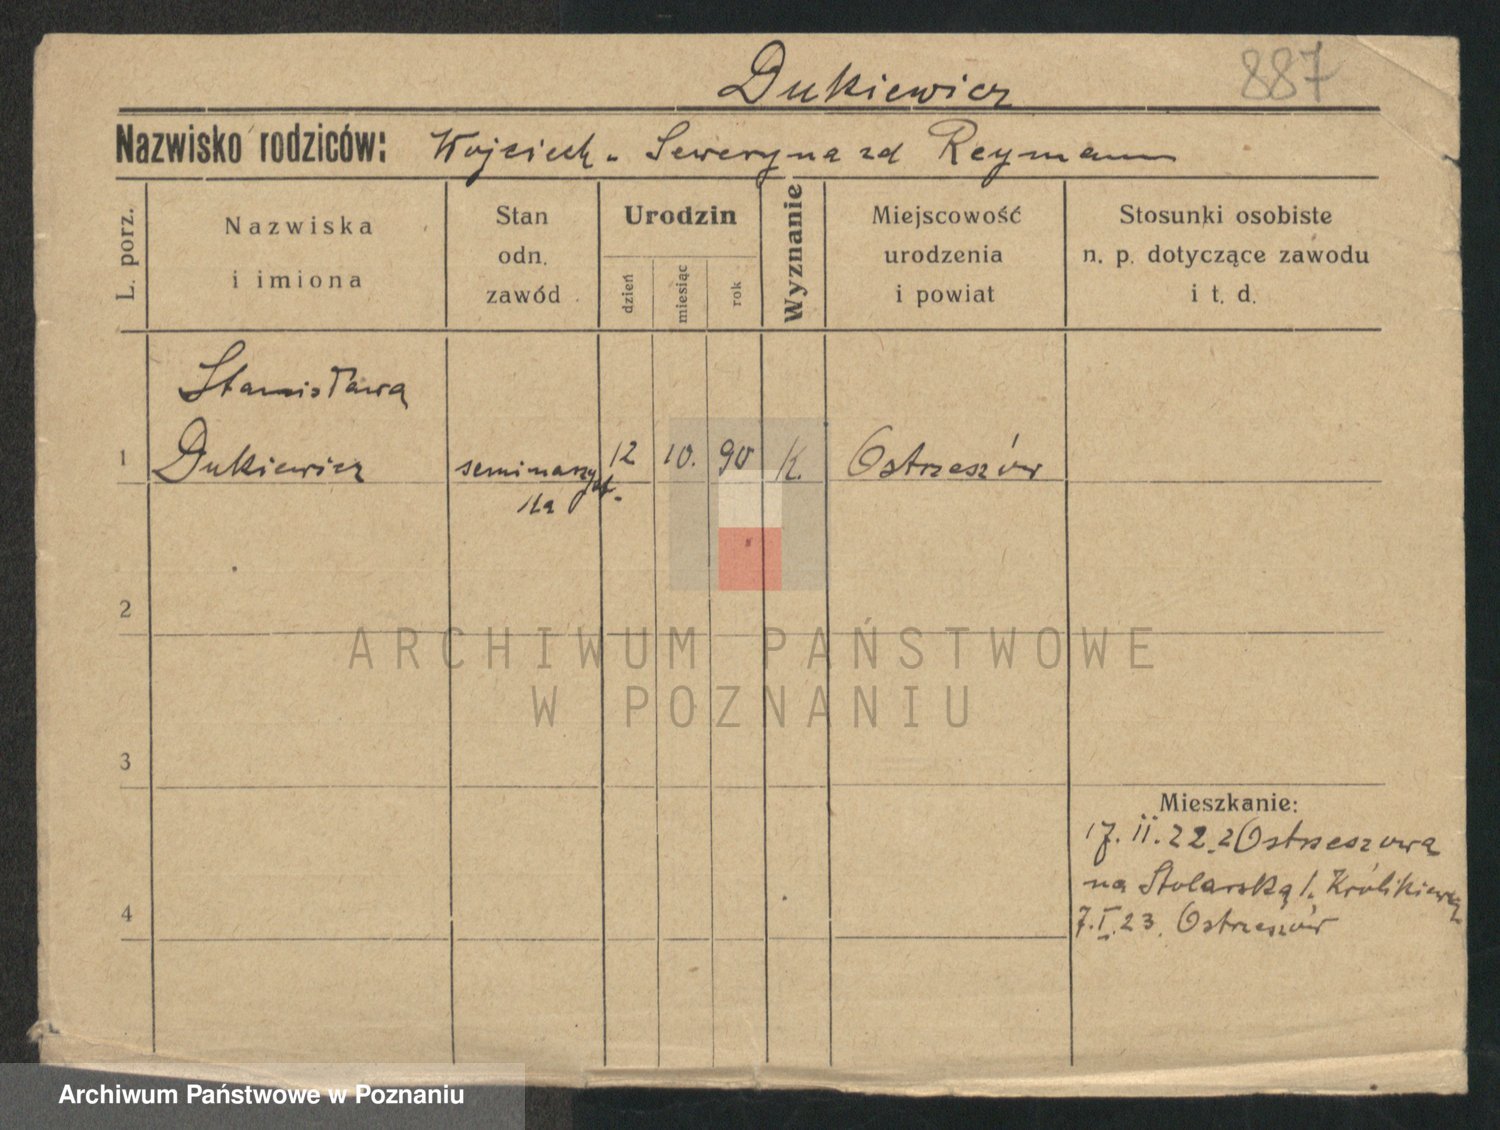 Dukiewicz
887
Nazwisko rodziców: Wojciech Seweryna zd Reymann
L. porz.
Nazwiska
i imiona
Stan
odn.
zawód
Urodzin
dzień
miesiąc
rok
Wyznanie
Miejscowość
urodzenia
i powiat
Stosunki osobiste
n. p. dotyczące zawodu
i t. d.
Stanisława
1 Dukiewicz seminarzyst. 12 10. 90 K. Ostrzeszów
ka
2
ARCHIWUM PAŃSTWOWE
W POZNANIU
3
Mieszkanie:
17. II. 22 z Ostrzeszowa
na Stolarską 1.
4
7. I. 23. Ostrzeszów
Archiwum Państwowe w Poznaniu